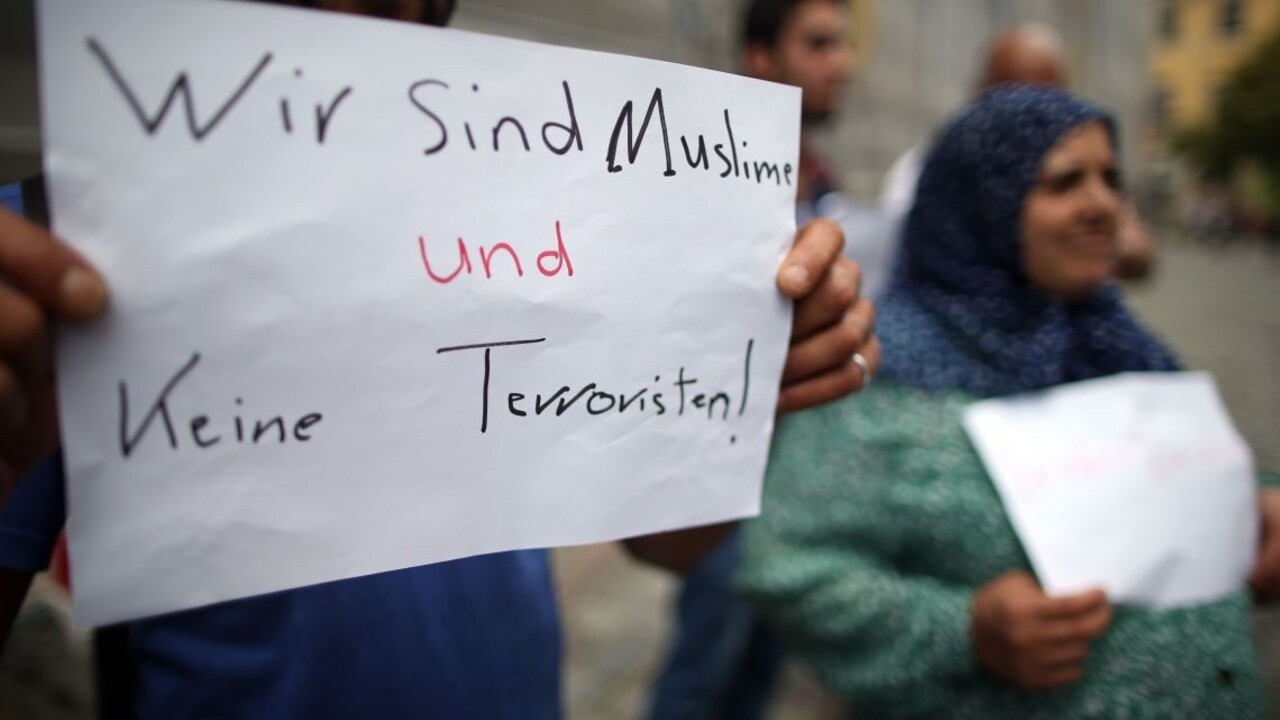 Wir Sind Muslime
und
Keine Terroristen!